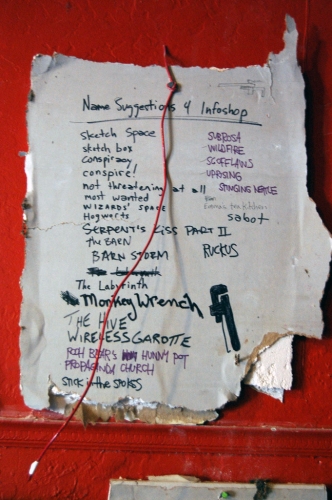 Name Suggestions 4 Infoshop
sketch space
sketch box
conspiracy
conspire!
not threatening at all
most wanted
WIZARDS' SPACE
Hogwarts
SERPENT'S KISS PART II
THE BARN
BARN STORM
The Labyrinth
Monkey Wrench
THE HIVE
WIRELESS GAROTTE
POOH BEAR'S HUNNY POT
PROPAGANDA CHURCH
STICK in the SPOKES
SUBROSA
WILDFIRE
SCOFFLAWS
UPRISING
STINGING NETTLE
sabot
RUCKUS